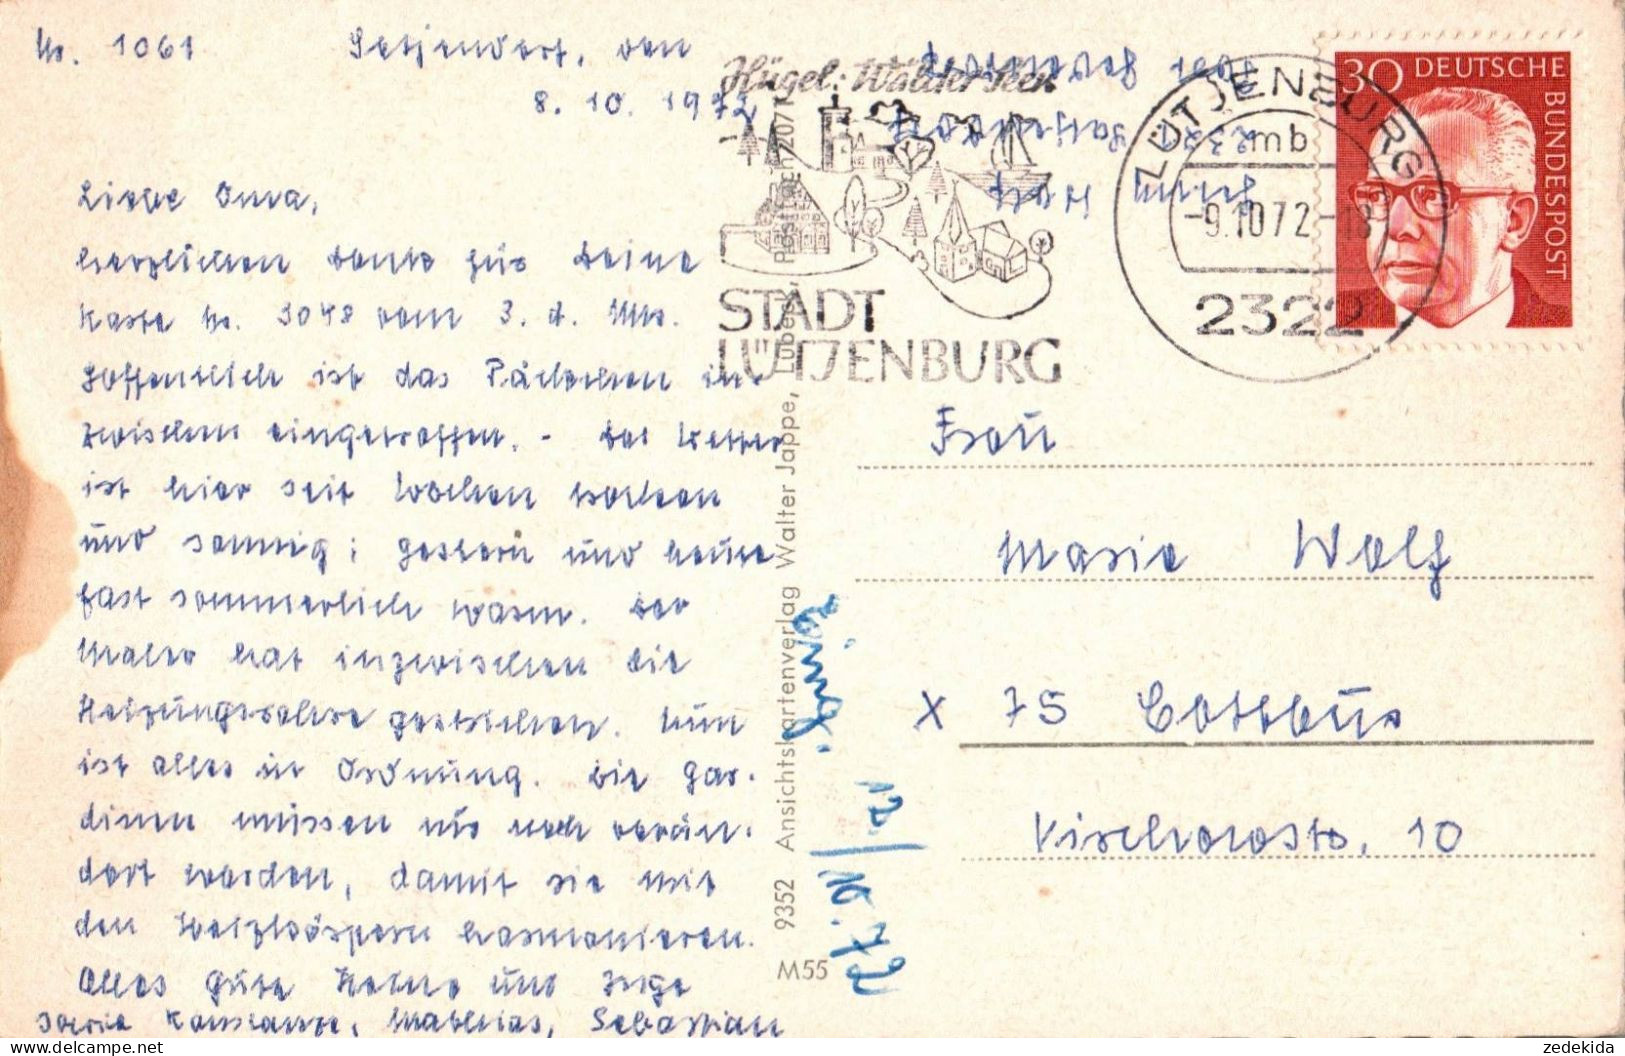 Nr. 1061 Satjendorf, den
8. 10. 1972
Liebe Oma,
herzlichen Dank für Deine
Karte Nr. 1048 vom 3. d. Mts.
Hoffentlich ist das Päckchen in-
zwischen eingetroffen. - Das Wetter
ist hier seit Wochen trocken
und sonnig; gestern und heute
fast sommerlich warm. Der
Maler hat inzwischen die
Heizungsrohre gestrichen. Nun
ist alles in Ordnung. Die Gar-
dinen müssen nur noch verän-
dert werden, damit sie mit
den Heizkörpern harmonieren.
Alles Gute und Inge
sowie Konstanze, Matthias, Sebastian
Hügel: Wälder: Seen
STADT
LÜTJENBURG
LÜTJENBURG
mb
-9.10.72-18
2322
30 DEUTSCHE
BUNDESPOST
2321 Satjendorf
9352 Ansichtskartenverlag Walter Jappe, Lübeck, Postfach 2071
M55
Eing.
12./10.72
Frau
Maria Wolf
X 75 Cottbus
Virchowstr. 10
zedekida